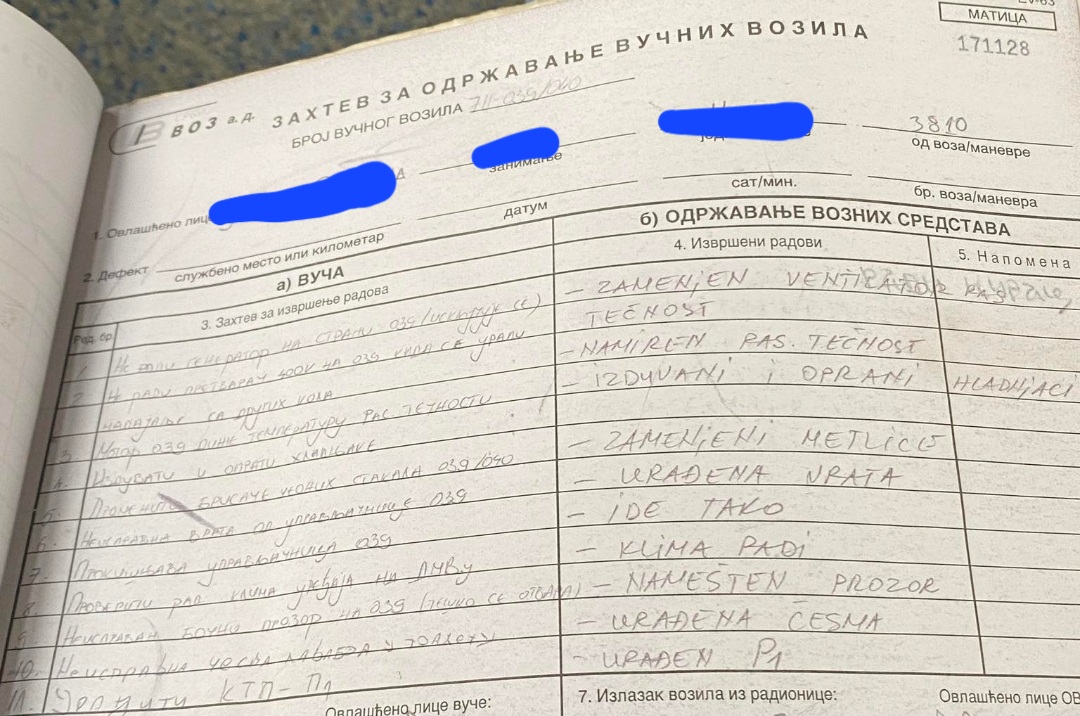 EV-63
МАТИЦА
171128
ВОЗ а.д. ЗАХТЕВ ЗА ОДРЖАВАЊЕ ВУЧНИХ ВОЗИЛА
БРОЈ ВУЧНОГ ВОЗИЛА 711-039/040
1. Овлашћено лице
занимање
3810
од воза/маневре
2. Дефект
службено место или километар
датум
сат/мин.
бр. воза/маневра
а) ВУЧА
б) ОДРЖАВАЊЕ ВОЗНИХ СРЕДСТАВА
Ред. бр.
3. Захтев за извршење радова
4. Извршени радови
5. Напомена
1. Не ради генератор на страни 039 /искључује се)
- ZAMENJEN VENTILATOR
2. Не ради претварач 400V на 039 кола се
TEČNOST
напајање са других кола
- NAMIREN RAS. TEČNOST
3. Мотор 039 диже температуру рас. течности
- IZDUVANI I OPRANI HLADNJACI
4. Издувати и опрати хладњаке
5. Променити брисаче чеоних стакала 039/040
- ZAMENJENI METLICE
6. Неисправна врата од управљачнице 039
- URAĐENA VRATA
7. управљачница 039
- IDE TAKO
8. Проверити рад клима уређаја на ДМВу
- KLIMA RADI
9. Неисправан бочни прозор на 039 (тешко се отвара)
- NAMEŠTEN PROZOR
10. Неисправна чесма лавабоа у тоалету
- URAĐENA ČESMA
11. Урадити КТП-П1
- URAĐEN P1
Овлашћено лице вуче:
7. Излазак возила из радионице:
Овлашћено лице ОВ